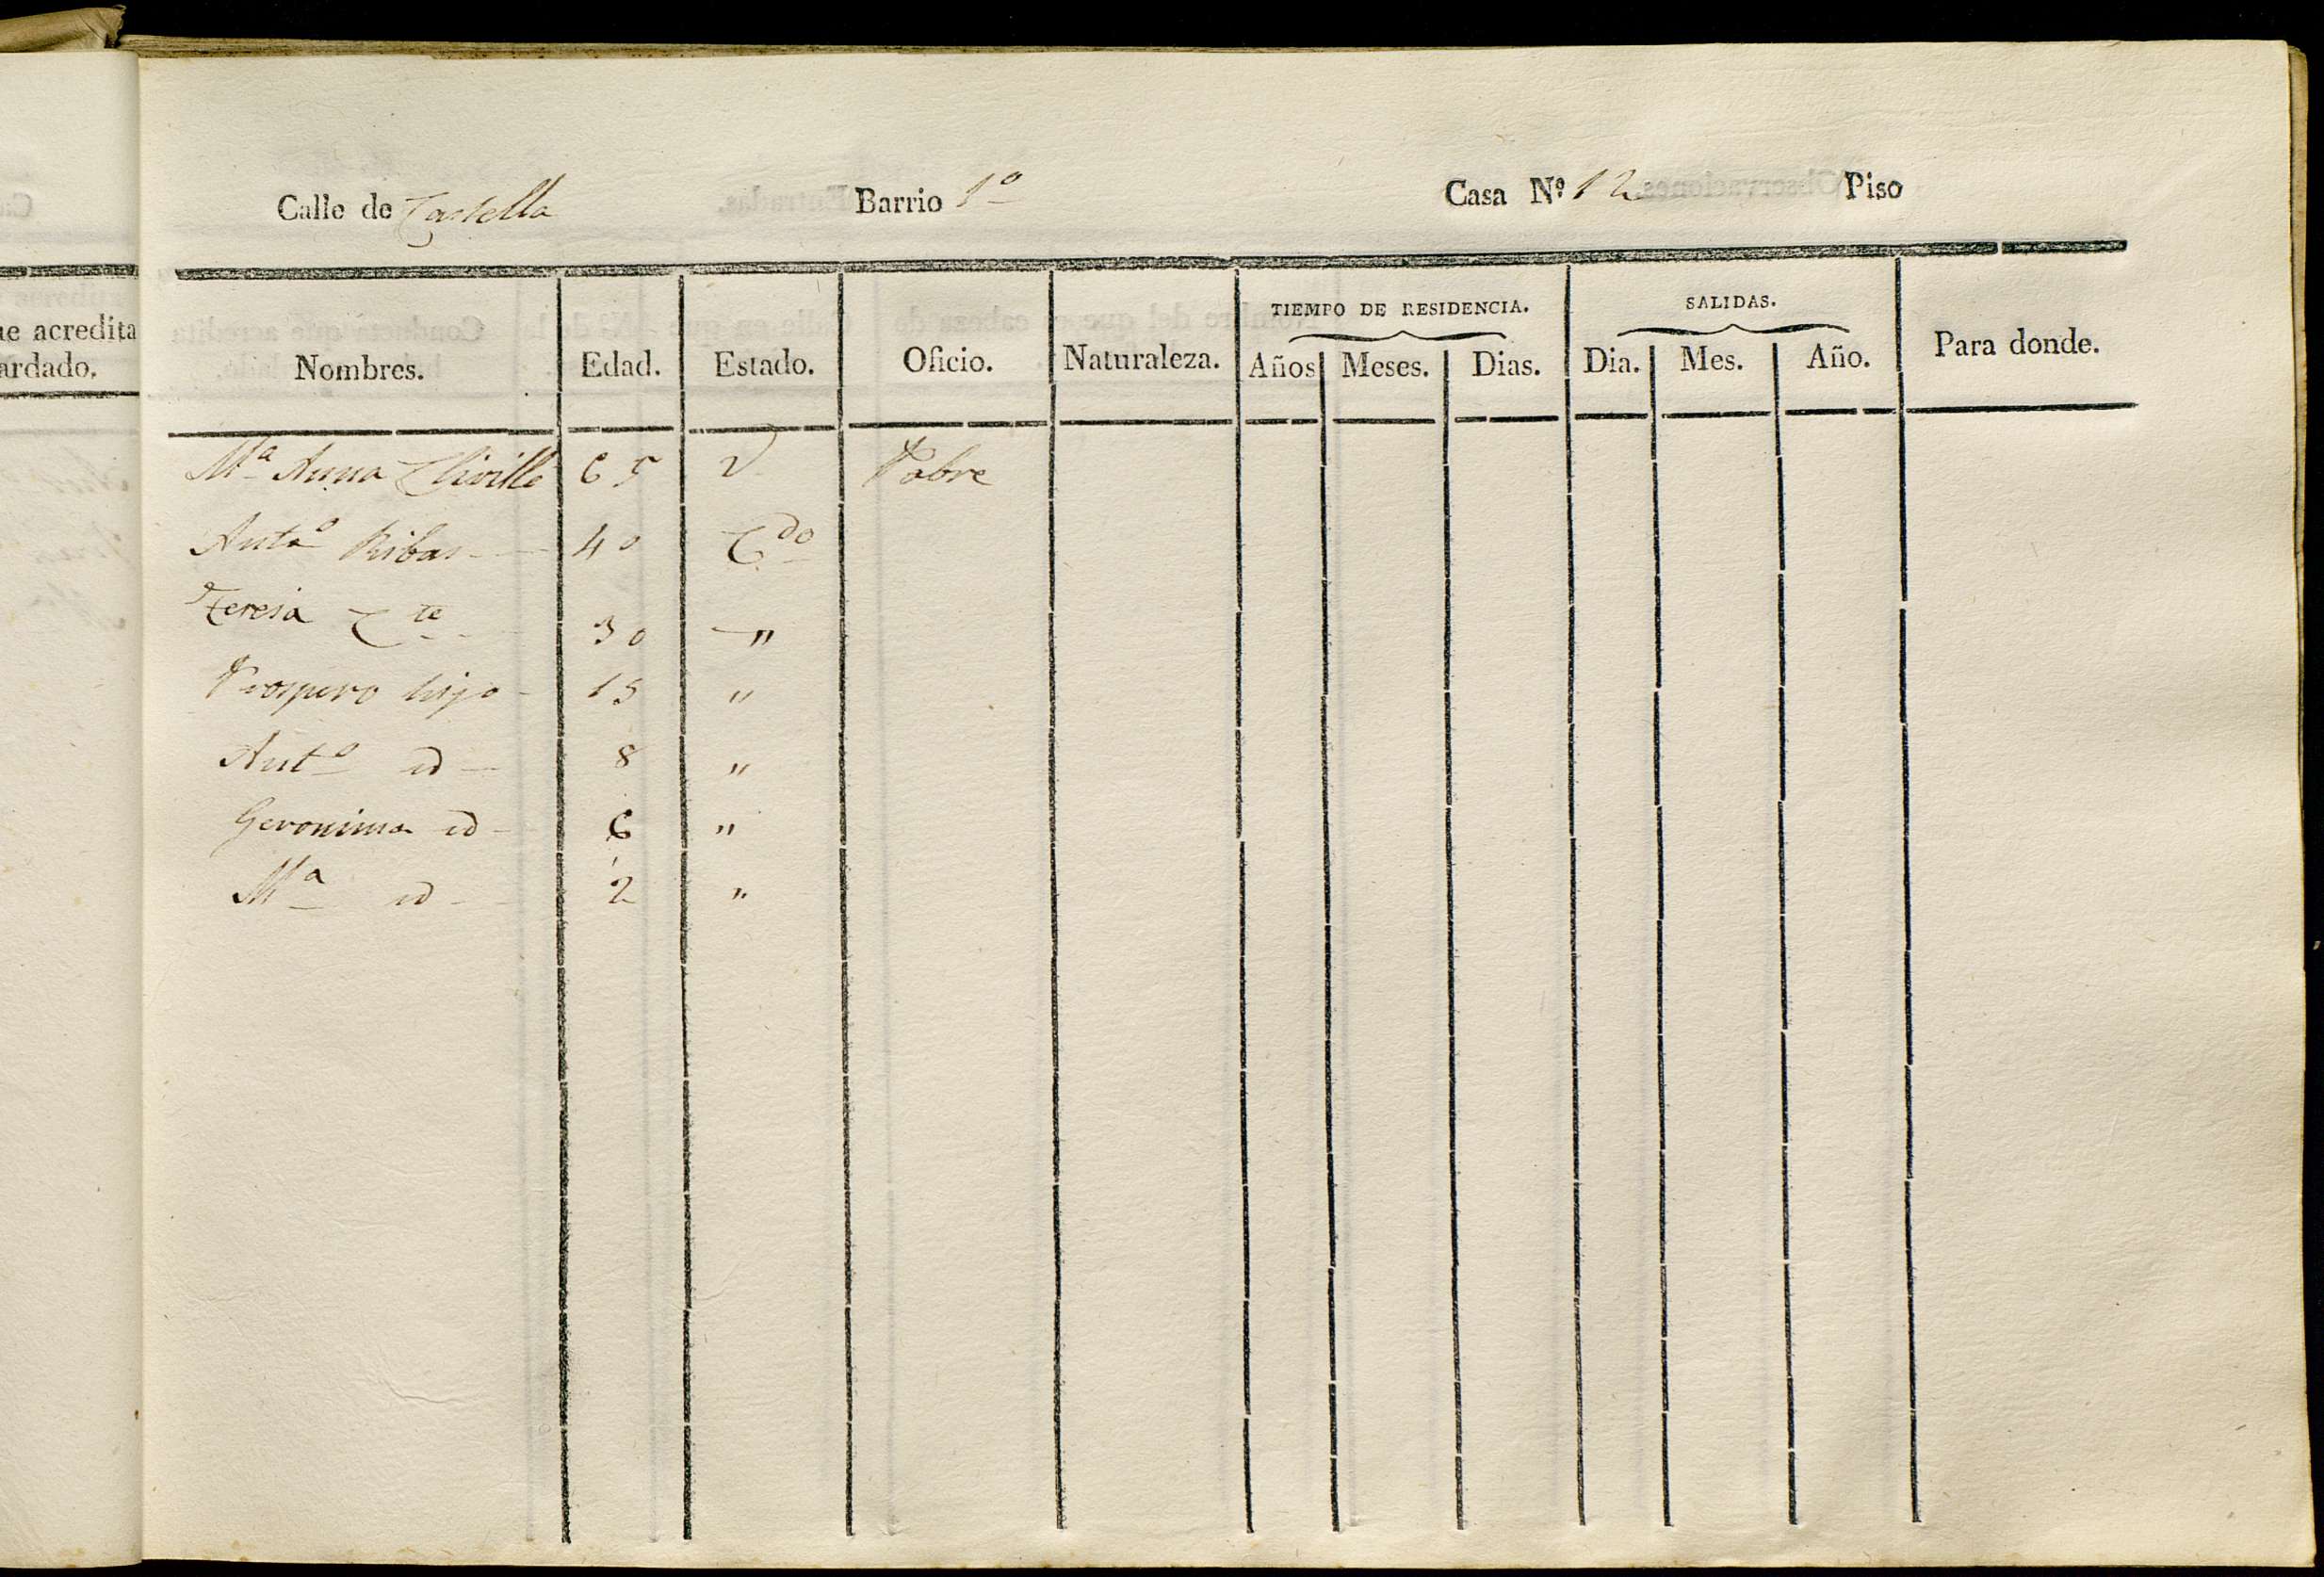 Calle de Castella Barrio 1º Casa Nº 12 Piso
ue acredita
ardado.
TIEMPO DE RESIDENCIA. SALIDAS.
Nombres. Edad. Estado. Oficio. Naturaleza. Años Meses. Dias. Dia. Mes. Año. Para donde.
Mª Anna Cliville 65 V Pobre
Antº Ribas 40 Cdo
Teresa Cte 30 "
Prospero hijo 15 "
Antº id 8 "
Geronima id 6 "
Mª id 2 "